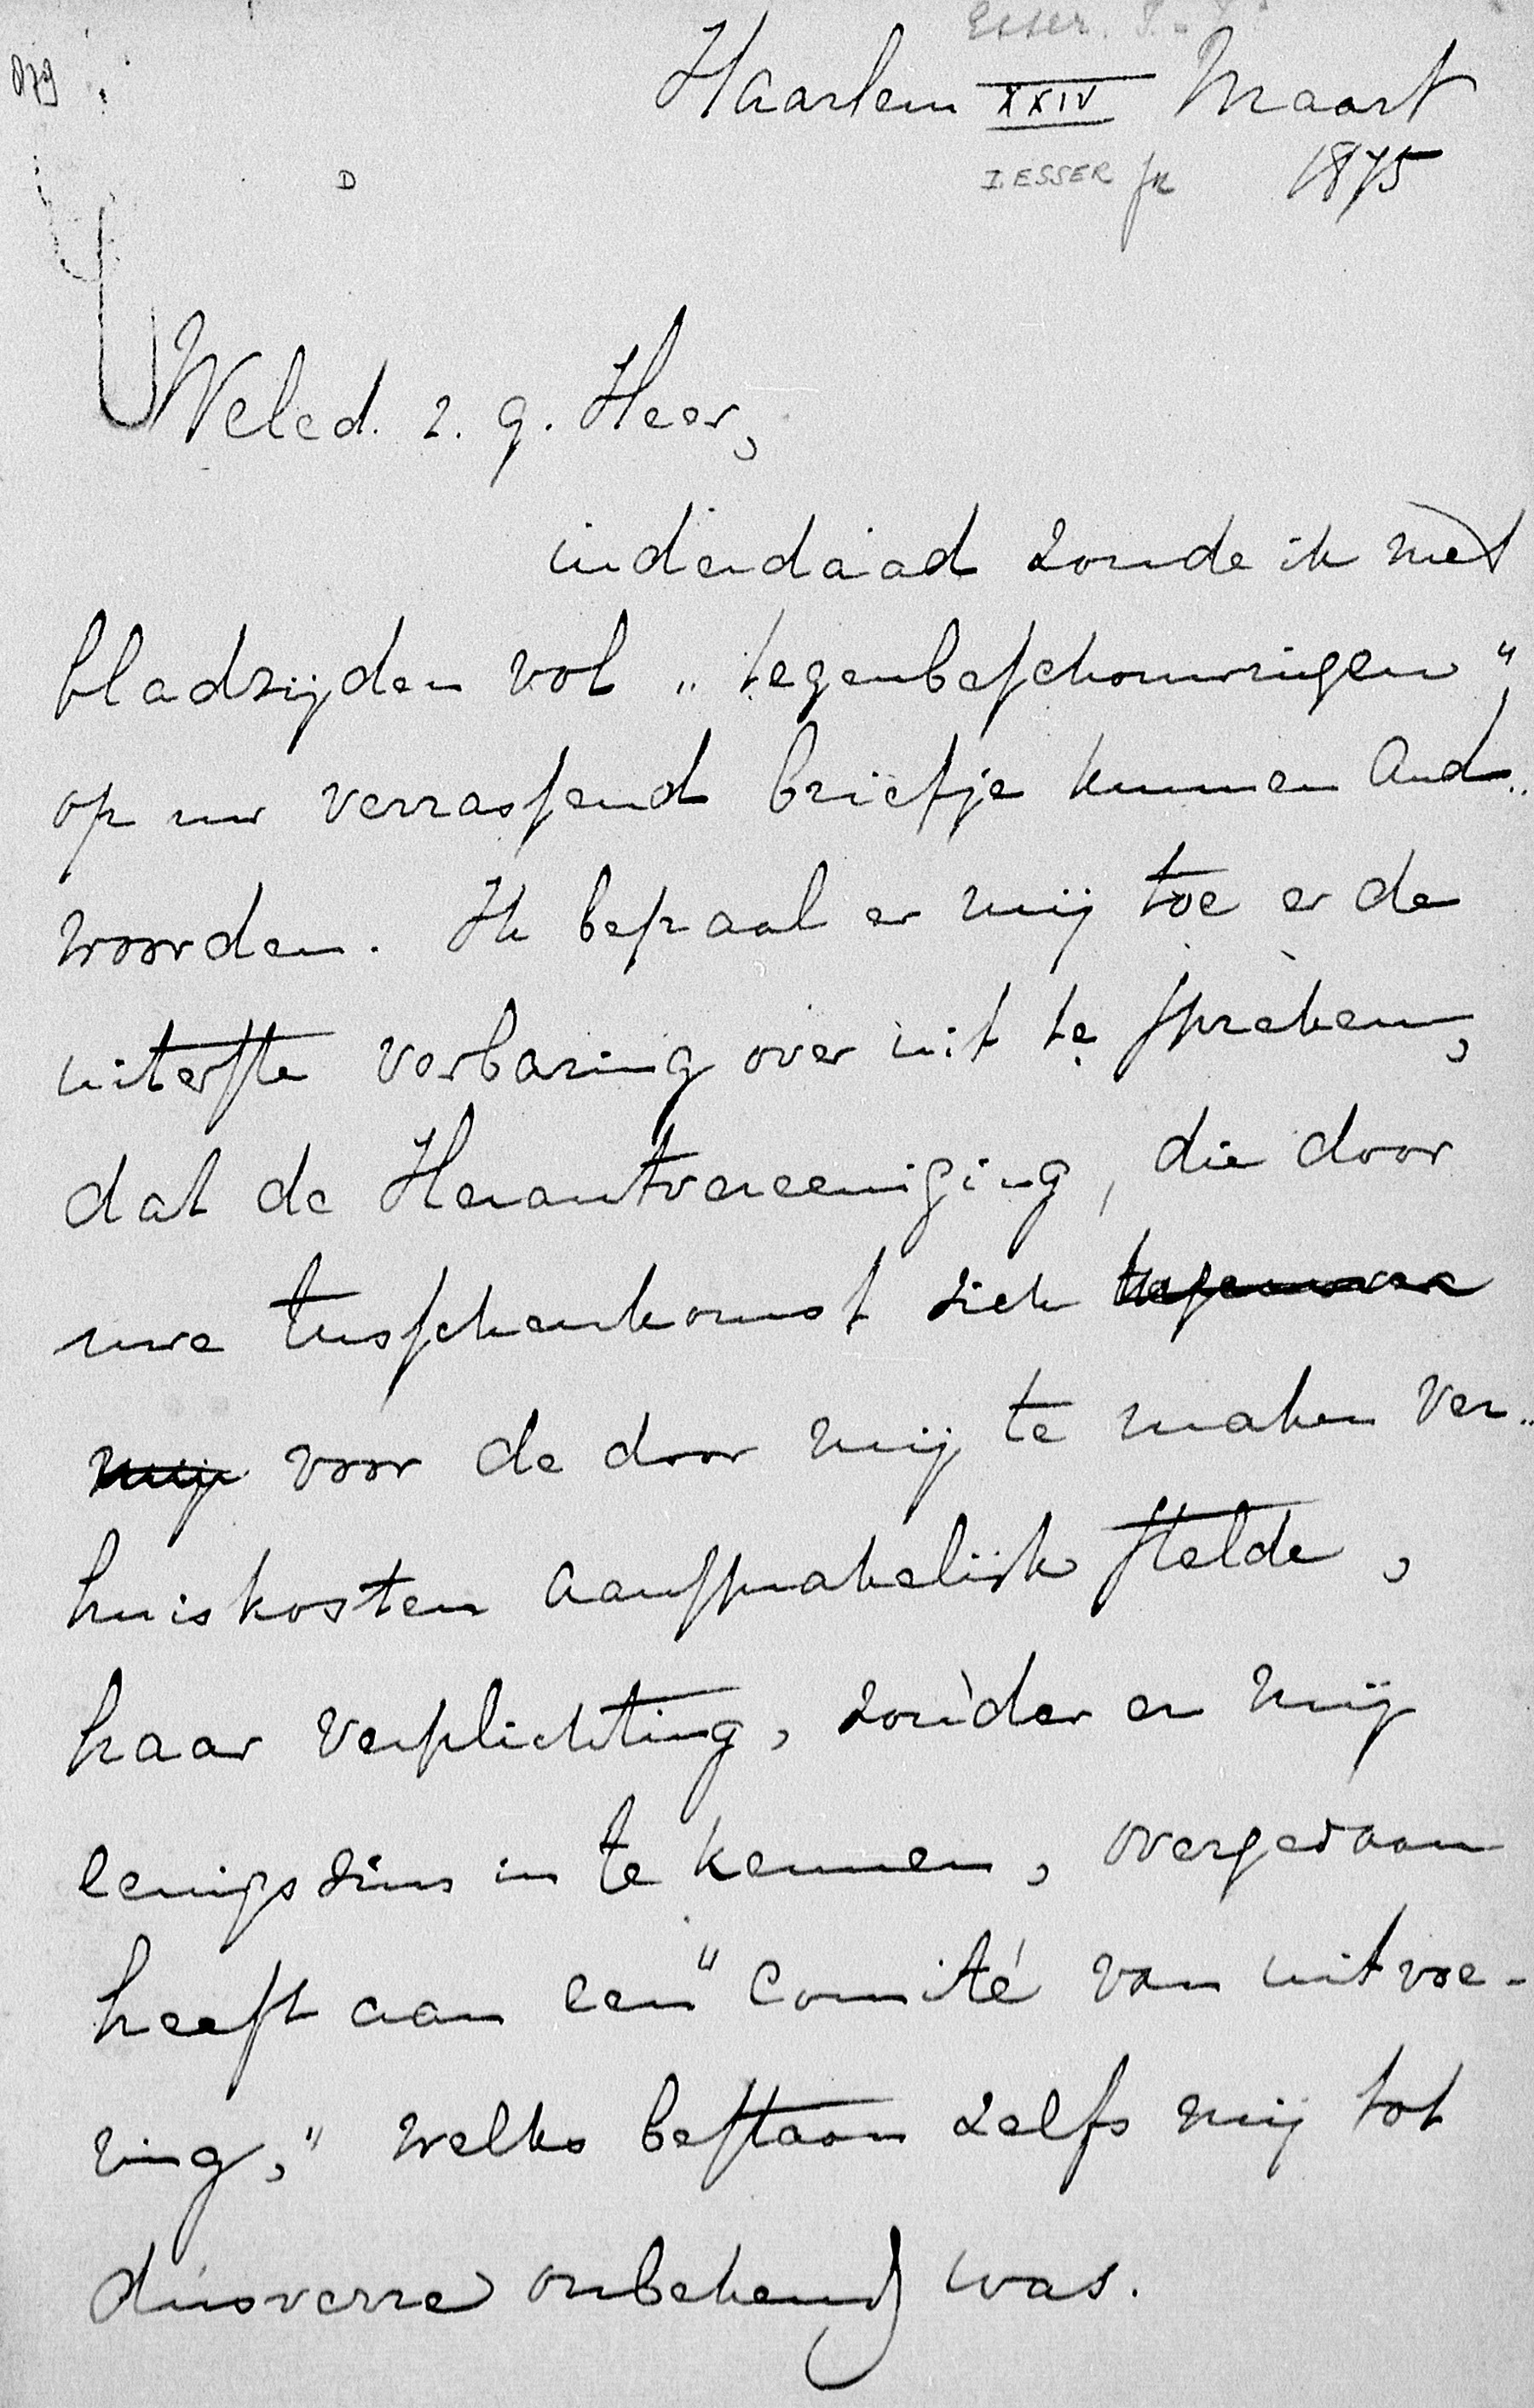 079
Haarlem XXIV Maart
I. ESSER jr 1875
D
Weled. z. g. Heer,
inderdaad zoude ik met
bladzijden vol „tegenbeschouwingen"
op uw verrassend briefje kunnen and„
woorden. Ik bepaal er mij toe er de
uiterste verbazing over uit te spreken,
dat de Herautvereeniging, die door
uwe tusschenkomst zich
mij voor de door mij te maken ver„
huiskosten aansprakelijk stelde,
haar verplichting, zonder er mij
eenigszins in te kennen, overgedaan
heeft aan een "Comité van uitvoe-
ring," welks bestaan zelfs mij tot
dusverre onbekend was.